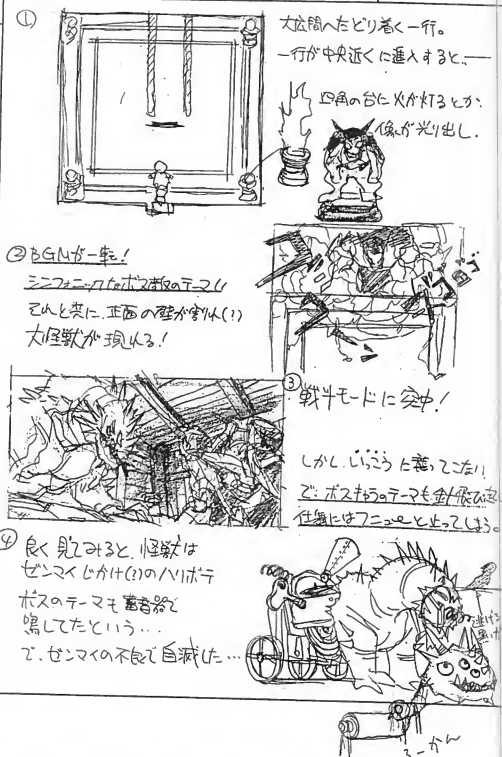 ①
大広間へたどり着く一行。
一行が中央近くに進入すると、―
四角の台に火が灯るとか、
像が光り出し.
②BGMが一転!
シンフォニックなボス敵のテーマ!
それと共に、正面の壁が割れ(?)
大怪獣が現れる!
ドゴゴ
③
戦斗モードに突中!
しかし、いっこうに襲ってこない
で、ボスキャラのテーマも針飛び
仕舞にはフニューと止ってしまう。
④
良く見てみると、怪獣は
ゼンマイじかけ(?)のハリボテ
ボスのテーマも蓄音器で
鳴してたという…
で、ゼンマイの不良で自滅した…
ろーかん